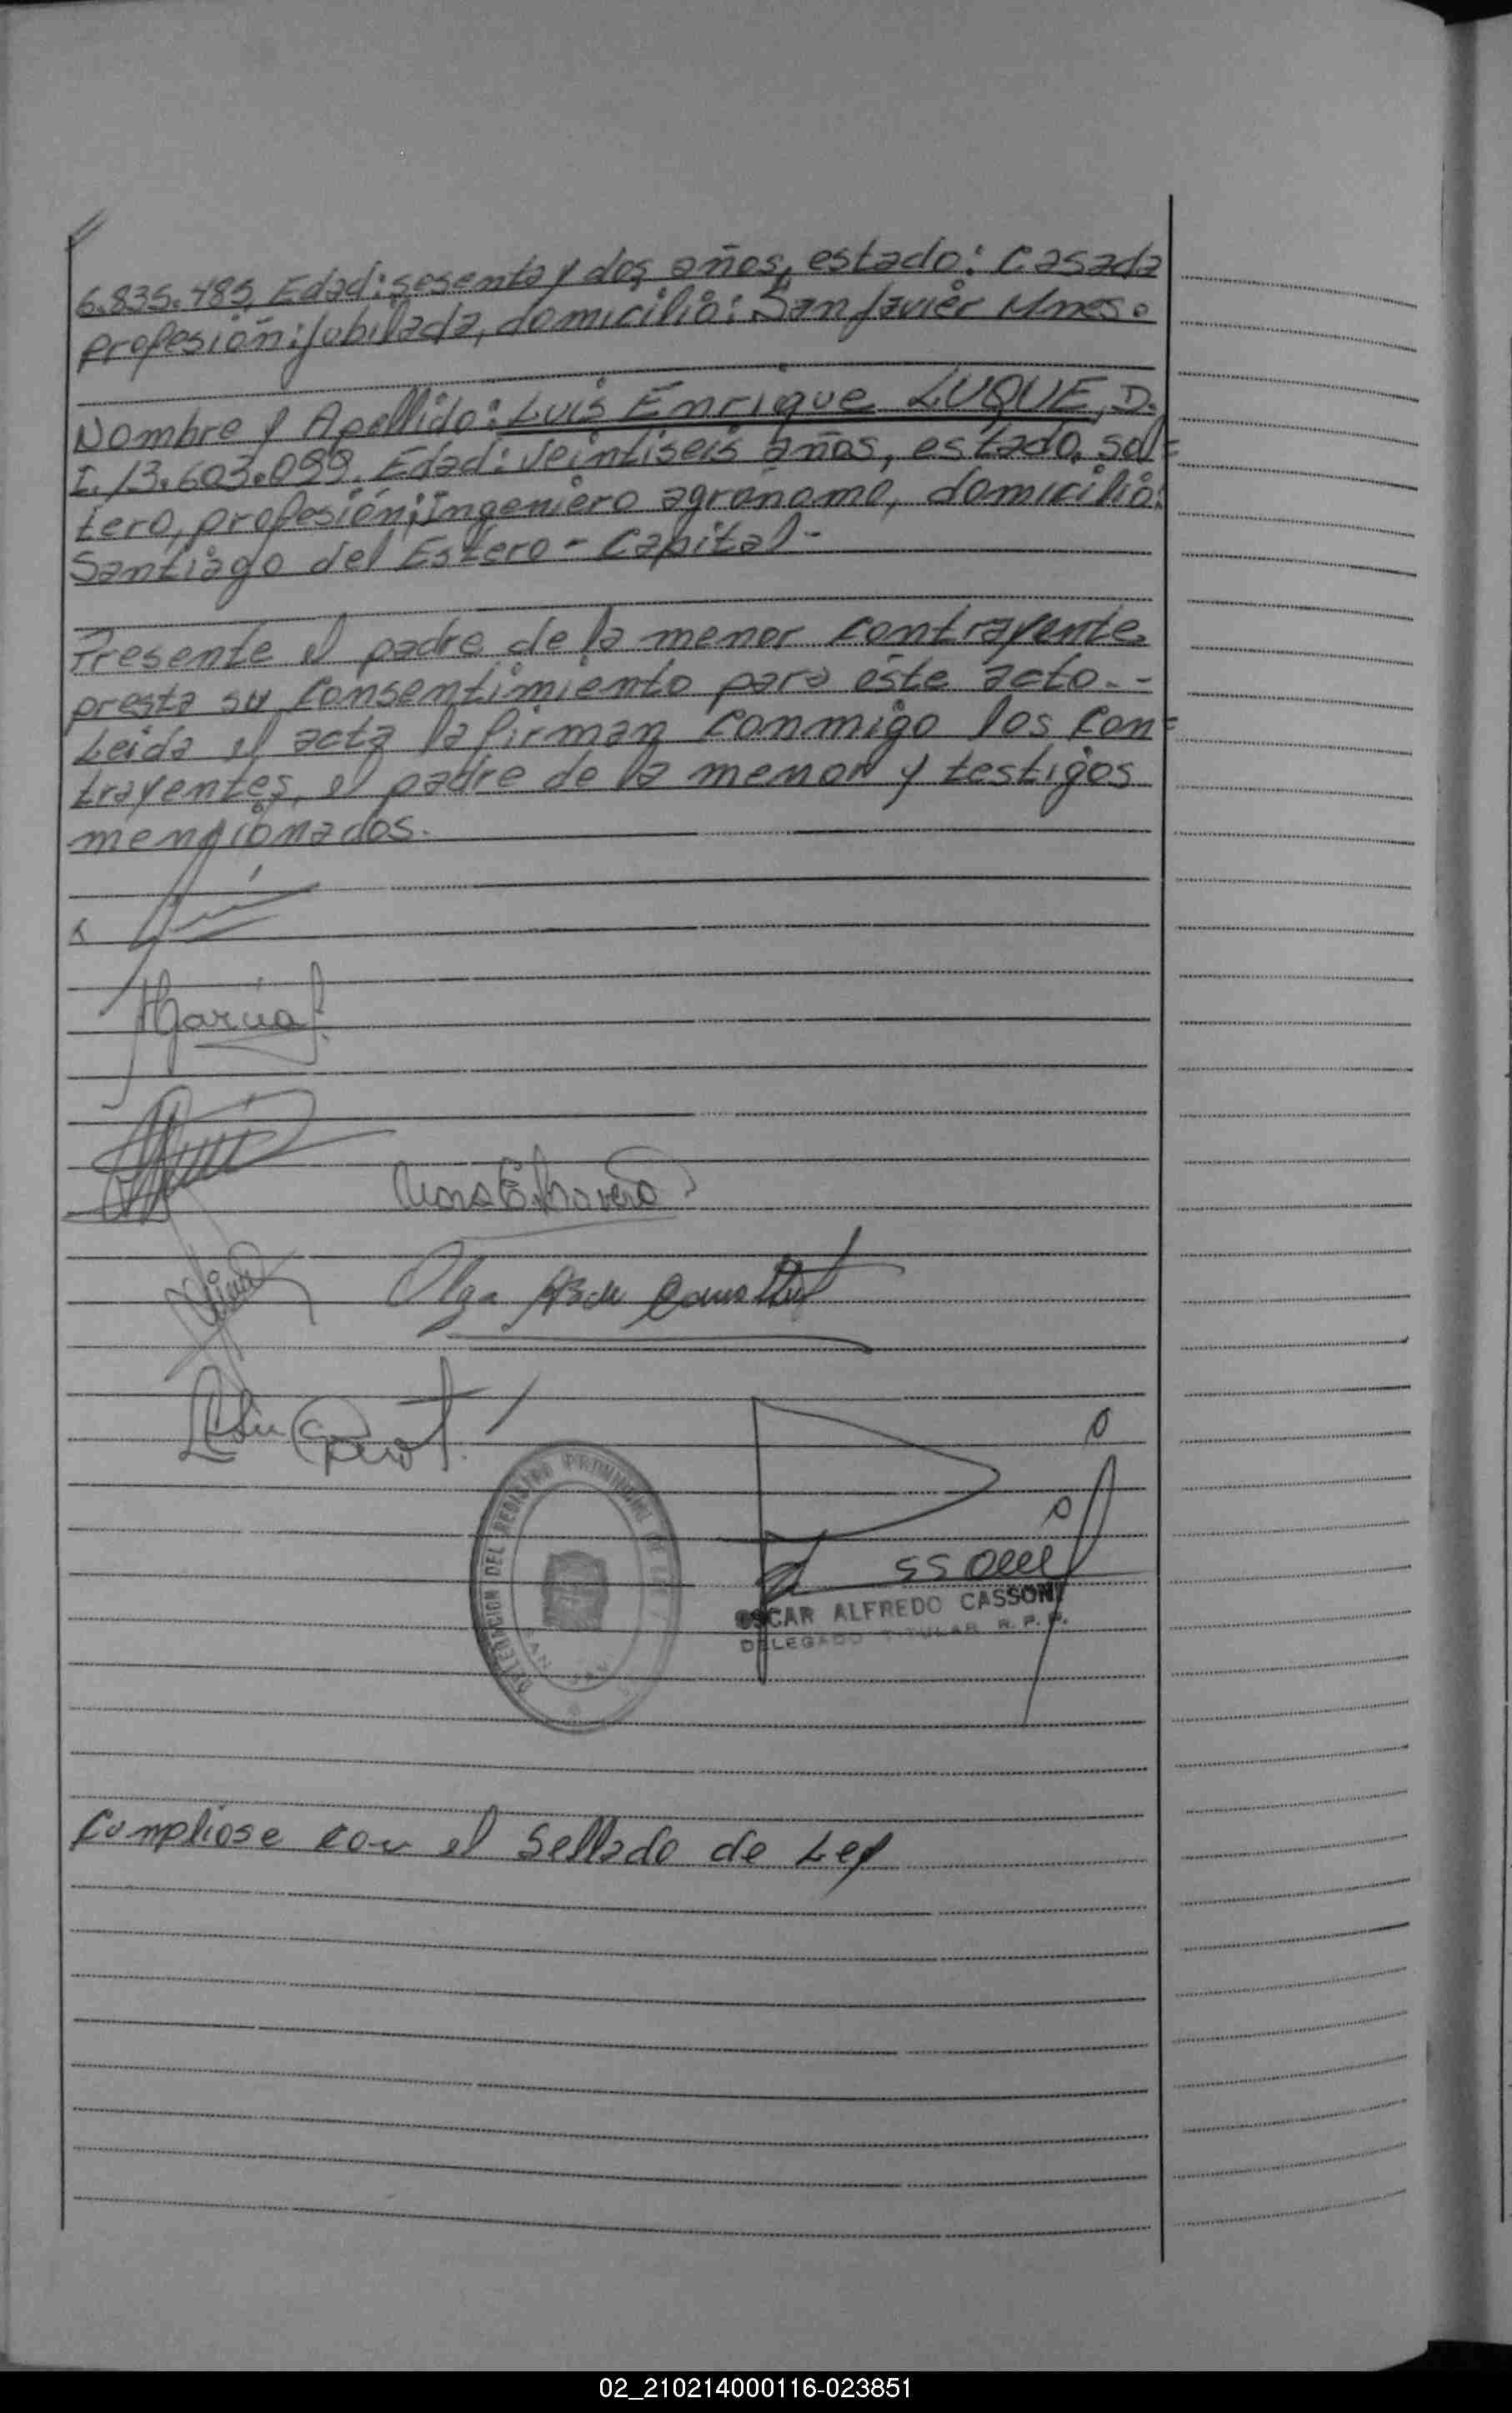 6.835.485, Edad: sesenta y dos años, estado: Casada
profesión: Jubilada, domicilio: San Javier Mnes.
Nombre y Apellido: Luis Enrique LUQUE, D.
I. 13.603.099. Edad: veintiseis años, estado, sol=
tero, profesión; Ingeniero agrónomo, domicilio:
Santiago del Estero - Capital -
Presente el padre de la menor contrayente
presta su consentimiento para éste acto. -
Leida el acta la firman conmigo los con=
trayentes, el padre de la menor y testigos
mencionados.
Olga
OSCAR ALFREDO CASSONI
DELEGADO TITULAR R. P. P.
DEL REGISTRO PROVINCIAL DE LAS
Cumpliose con el Sellado de Ley
02_210214000116-023851